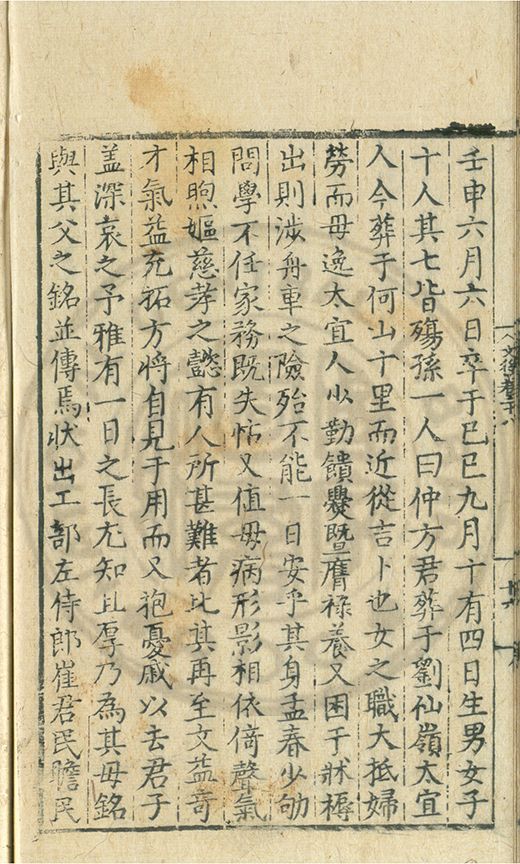 壬申六月六日卒于巳巳九月十有四日生男女子
十人其七皆殤孫一人曰仲方君葬于劉仙嶺太宜
人今葬于何山十里而近從吉卜也女之職大抵婦
勞而母逸太宜人少勤饋㸑暨膺禄養又困于牀褥
出則涉舟車之險殆不能一日安乎其身孟春少劬
問學不任家務既失怙又值母病形影相依倚聲氣
相煦嫗慈孝之懿有人所甚難者比其再至文益竒
才氣益充拓方將自見于用而又抱憂戚以去君子
盖深哀之予雅有一日之長尤知且厚乃為其母銘
與其父之銘並傳焉狀出工部左侍郎崔君民瞻民